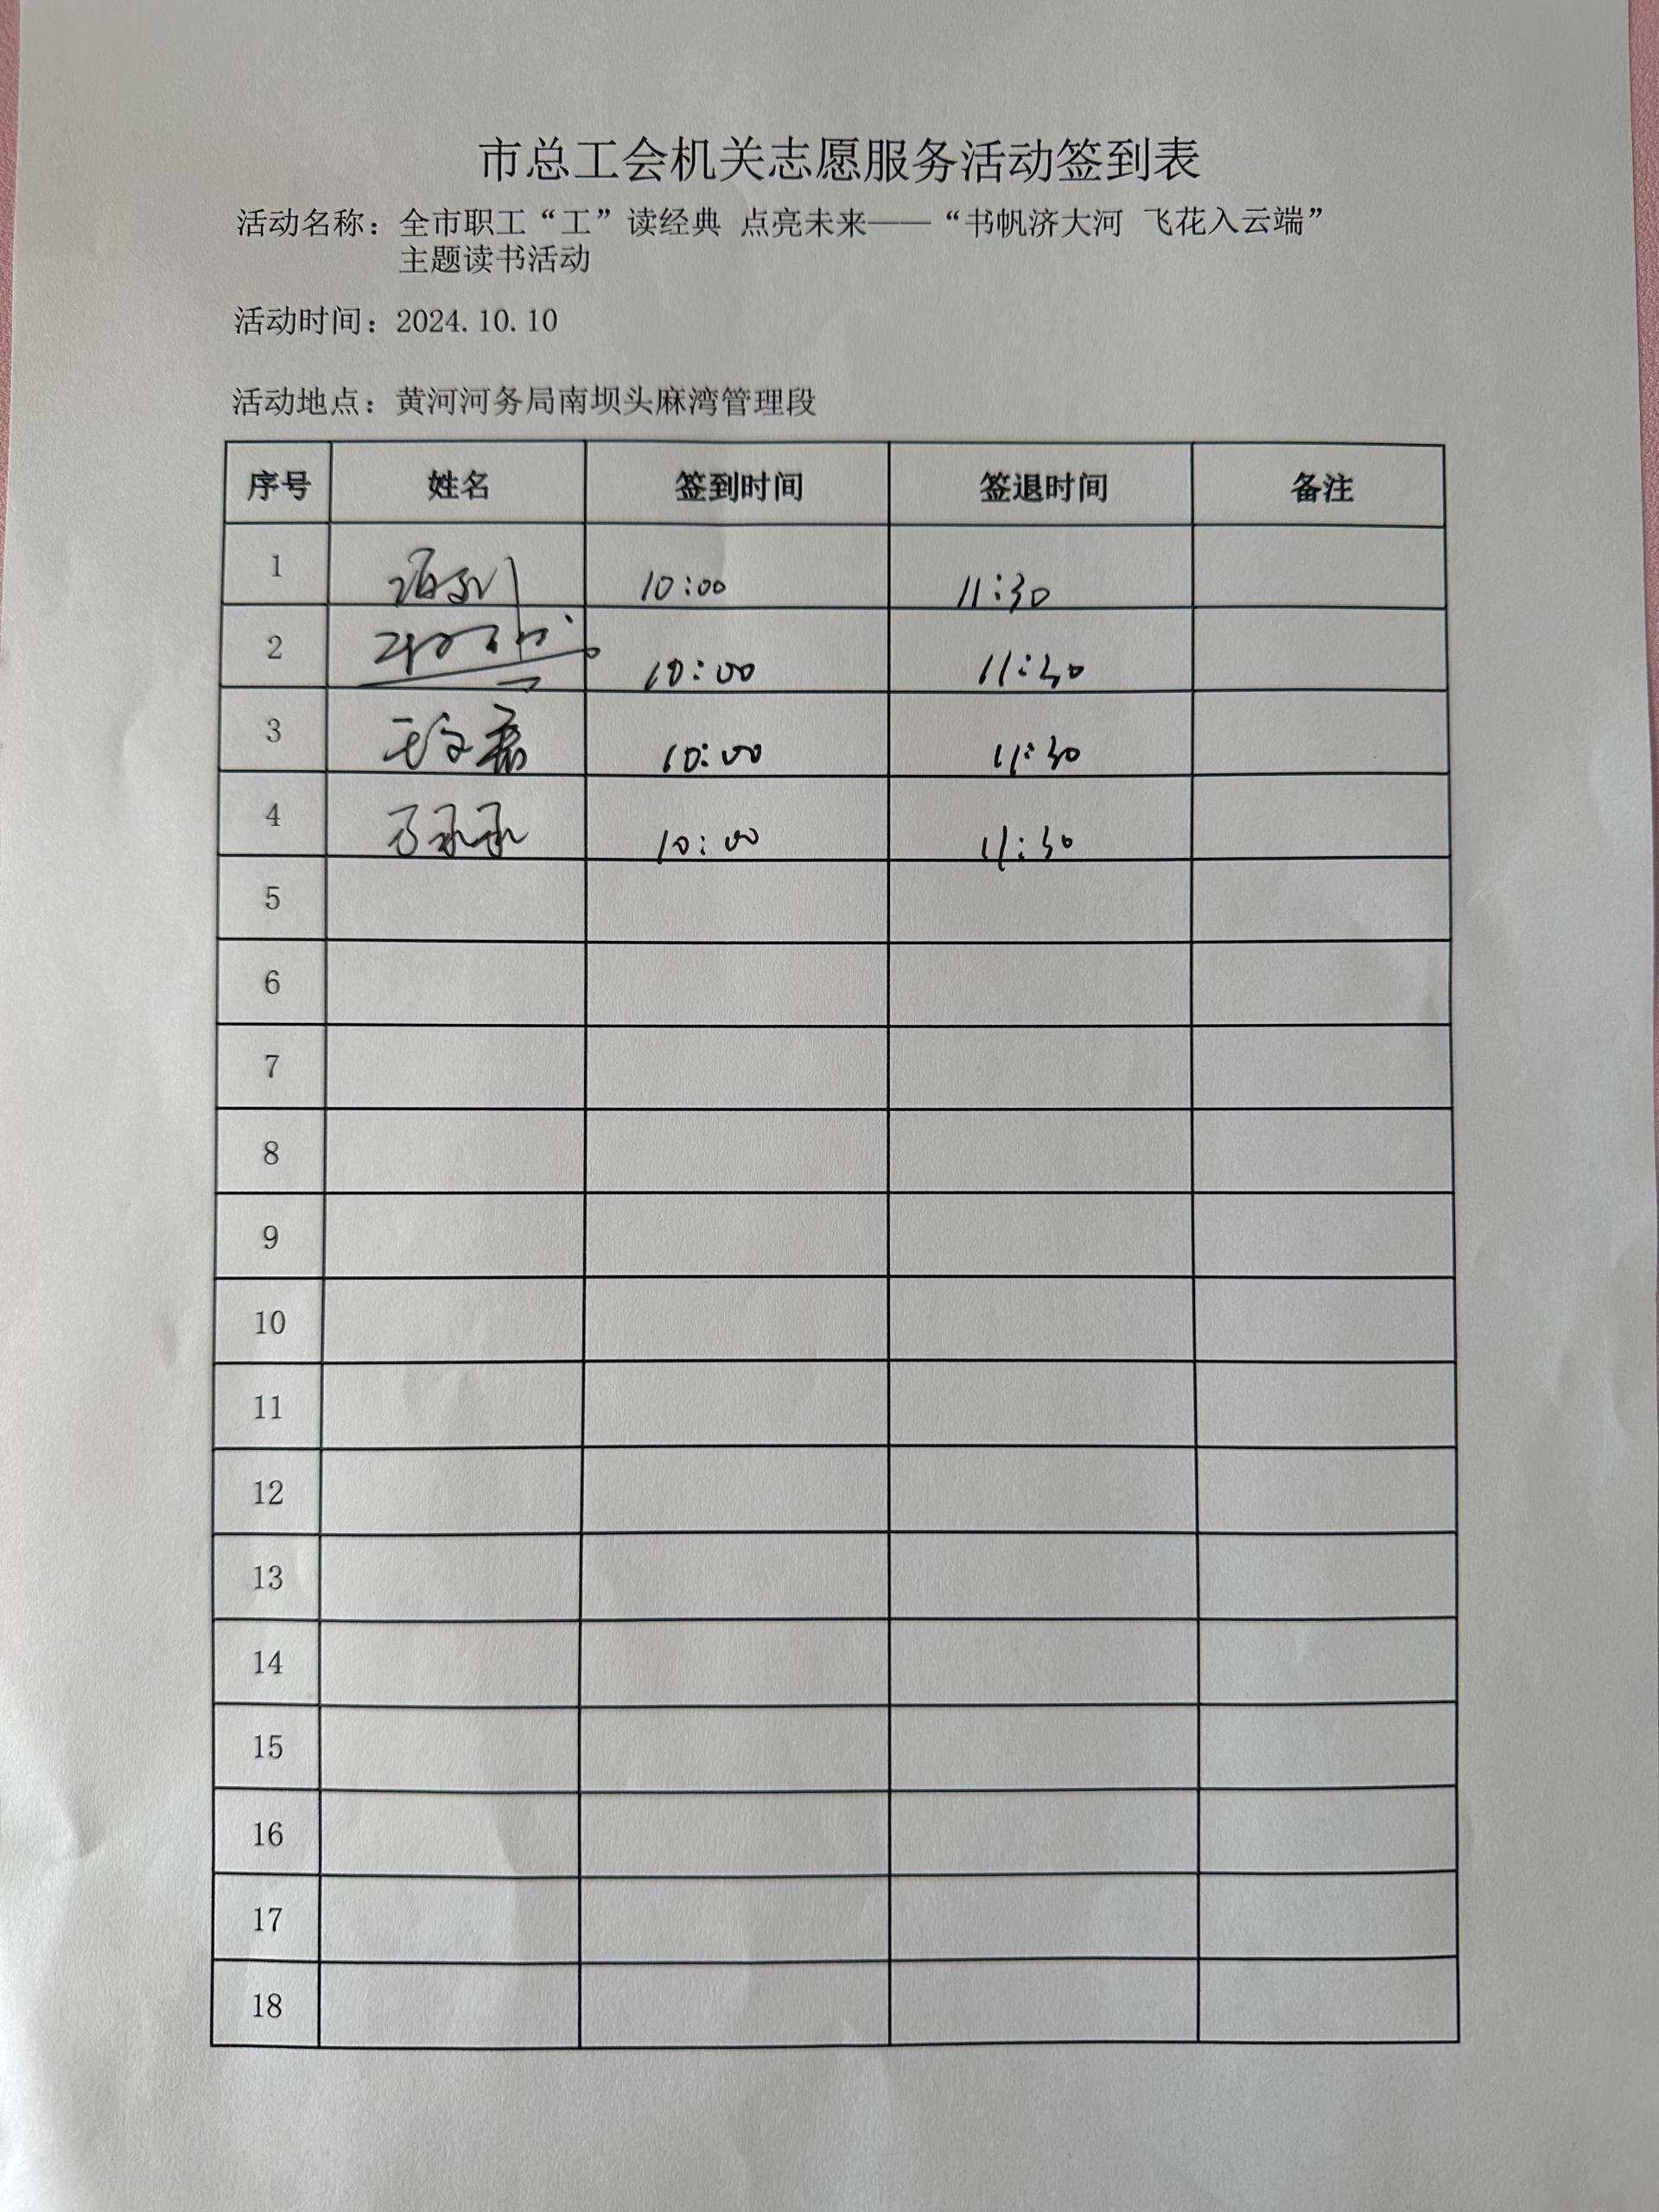 市总工会机关志愿服务活动签到表
活动名称：全市职工“工”读经典 点亮未来——“书帆济大河 飞花入云端”
主题读书活动
活动时间：2024.10.10
活动地点：黄河河务局南坝头麻湾管理段
序号 姓名 签到时间 签退时间 备注
1 10:00 11:30
2 10:00 11:30
3 10:00 11:30
4 10:00 11:30
5
6
7
8
9
10
11
12
13
14
15
16
17
18